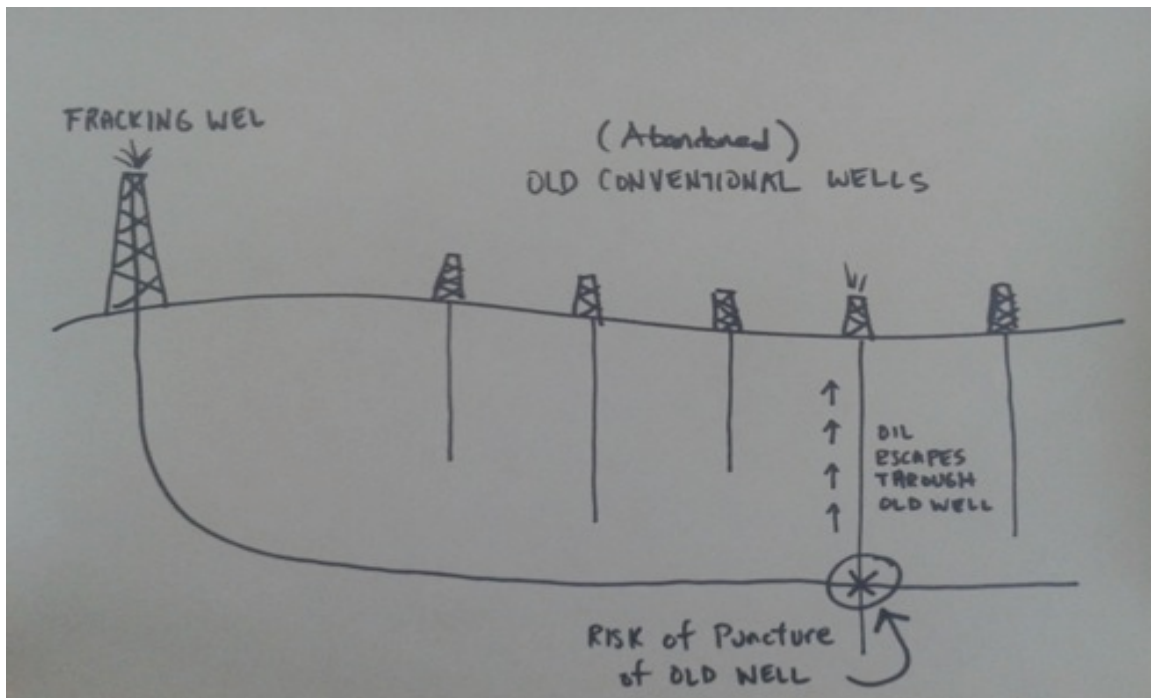 FRACKING WEL
(Abandoned)
OLD CONVENTIONAL WELLS
OIL
ESCAPES
THROUGH
OLD WELL
RISK of Puncture
of OLD WELL